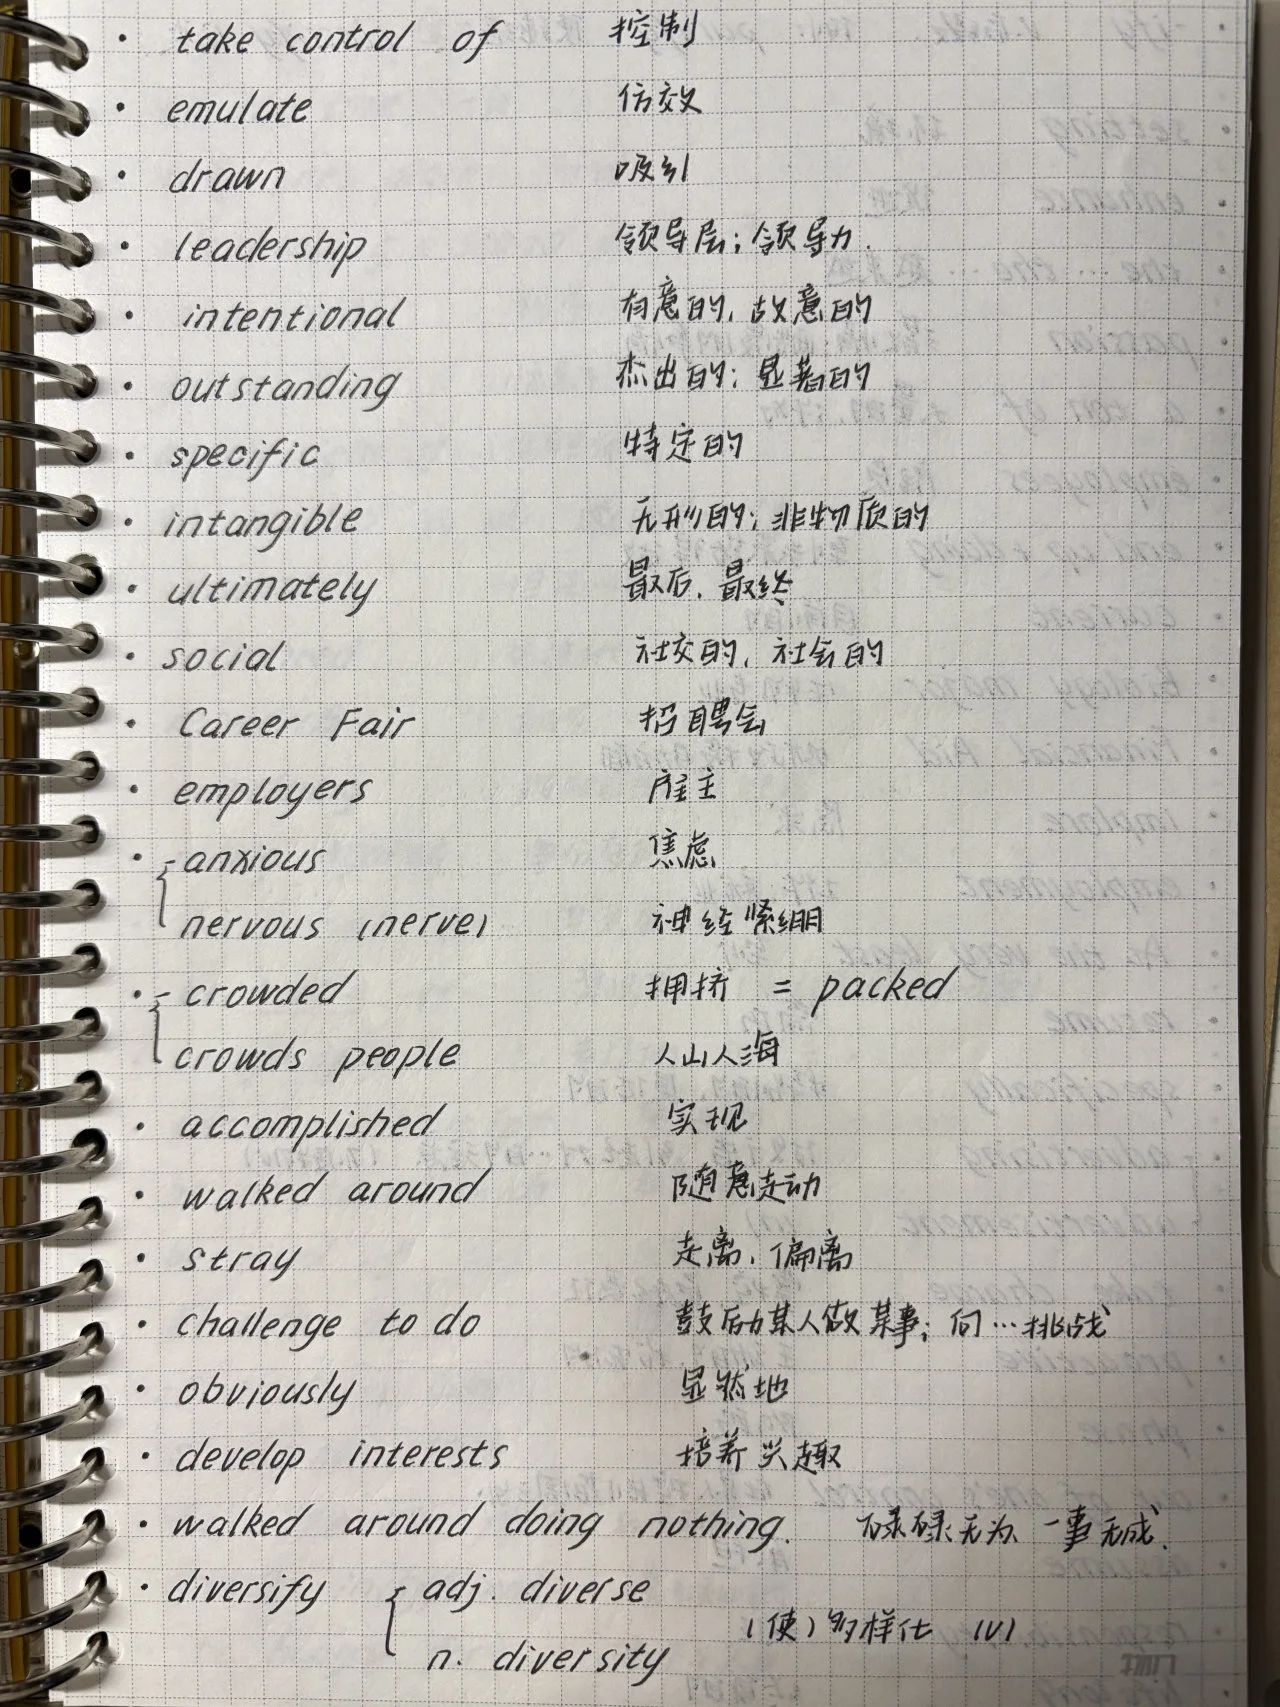 · take control of 控制
· emulate 仿效
· drawn 吸引
· leadership 领导层；领导力.
· intentional 有意的，故意的
· outstanding 杰出的；显著的
· specific 特定的
· intangible 无形的；非物质的
· ultimately 最后，最终
· social 社交的，社会的
· Career Fair 招聘会
· employers 雇主
· anxious 焦虑
nervous (nerve) 神经紧绷
· crowded 拥挤 = packed
crowds people 人山人海
· accomplished 实现
· walked around 随意走动
· stray 走离，偏离
· challenge to do 鼓励某人做某事；向…挑战
· obviously 显然地
· develop interests 培养兴趣
· walked around doing nothing. 碌碌无为、一事无成.
· diversify { adj. diverse
(使)多样化 (v)
n. diversity